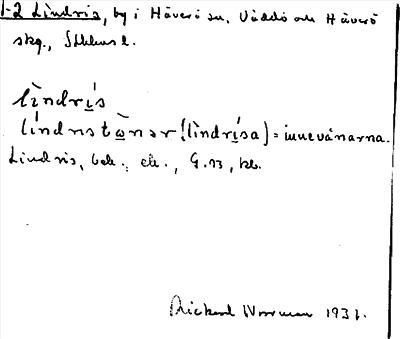 1-2 Lindris, by i Häverö sn, Väddö och Häverö
skg., Sthlms l.
lìndrís
líndristànər (lìndrísa) = innevånarna.
Lindris, beb., ek., G.13, kb.
Rickard Norrman 193